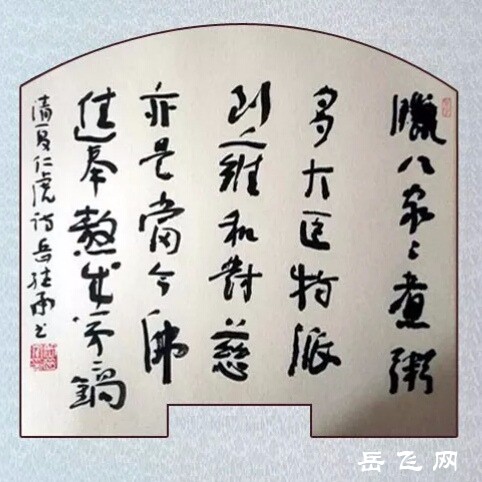 臘八家々煮粥
多大臣特派
到雍和對慈
亦是當今佛
進奉熬成第二鍋
清夏仁虎诗岳雨书
岳飞网